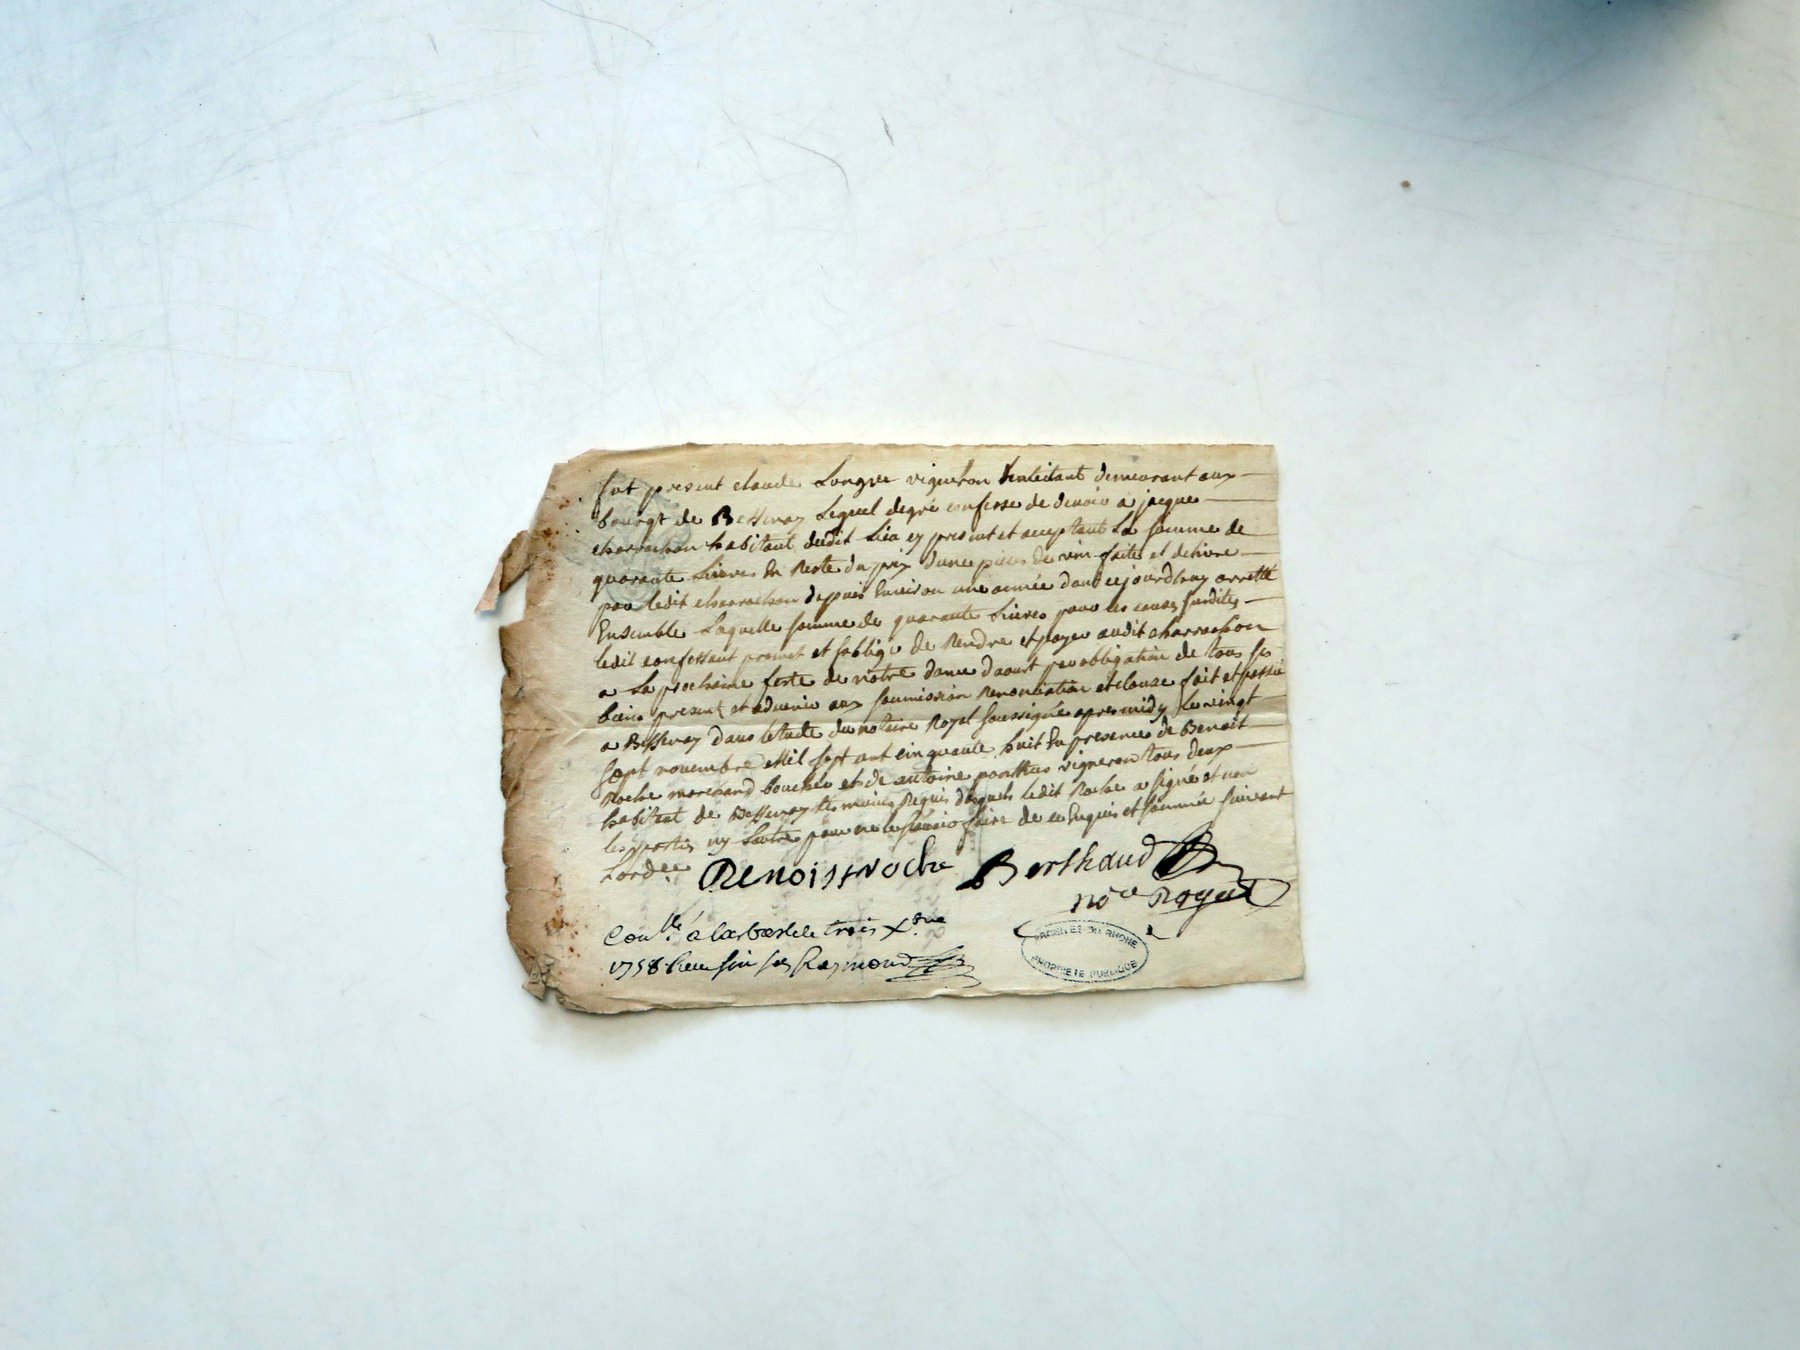 fut present claude Longre vigneron habitant demeurant aux
bourgt de Bessenay Lequel degré confesse de devoir a jacque
charrachon habitant dudit Lieu cy present et acceptant La somme de
quarante Livres En Reste du prix d'une piece de vin faite et delivre
par ledit charrachon depuis Environ une année dont cejourdhuy arretté
Ensemble Laquelle somme de quarante Livres pour les causes susdites
ledit confessant promet et soblige de Rendre et payer audit charrachon
a La prochaine feste de notre dame daoust par obligation de tous ses
biens present et advenir aux soumission Renonciation et clause fait et passé
a Bessenay dans létude du notaire Royal soussigné apres midy Le vingt
sept novembre Mil sept cent cinquante huit En presence de Benoit
Roche marchand boucher et de antoine ponthus vigneron tous deux
habitant de Bessenay temoins Requis desquels ledit Roche a signé et non
les parties ny Lautre pour ne le savoir faire de ce Enquis et sommé suivant
Lord.ce
BENOIST roche Berthaud
no.re Royal
Con.lle á Larbresle le trois X.bre
1758 Recu six sols Raymond
ARCHIVES DU RHONE
PROPRIÉTÉ PUBLIQUE